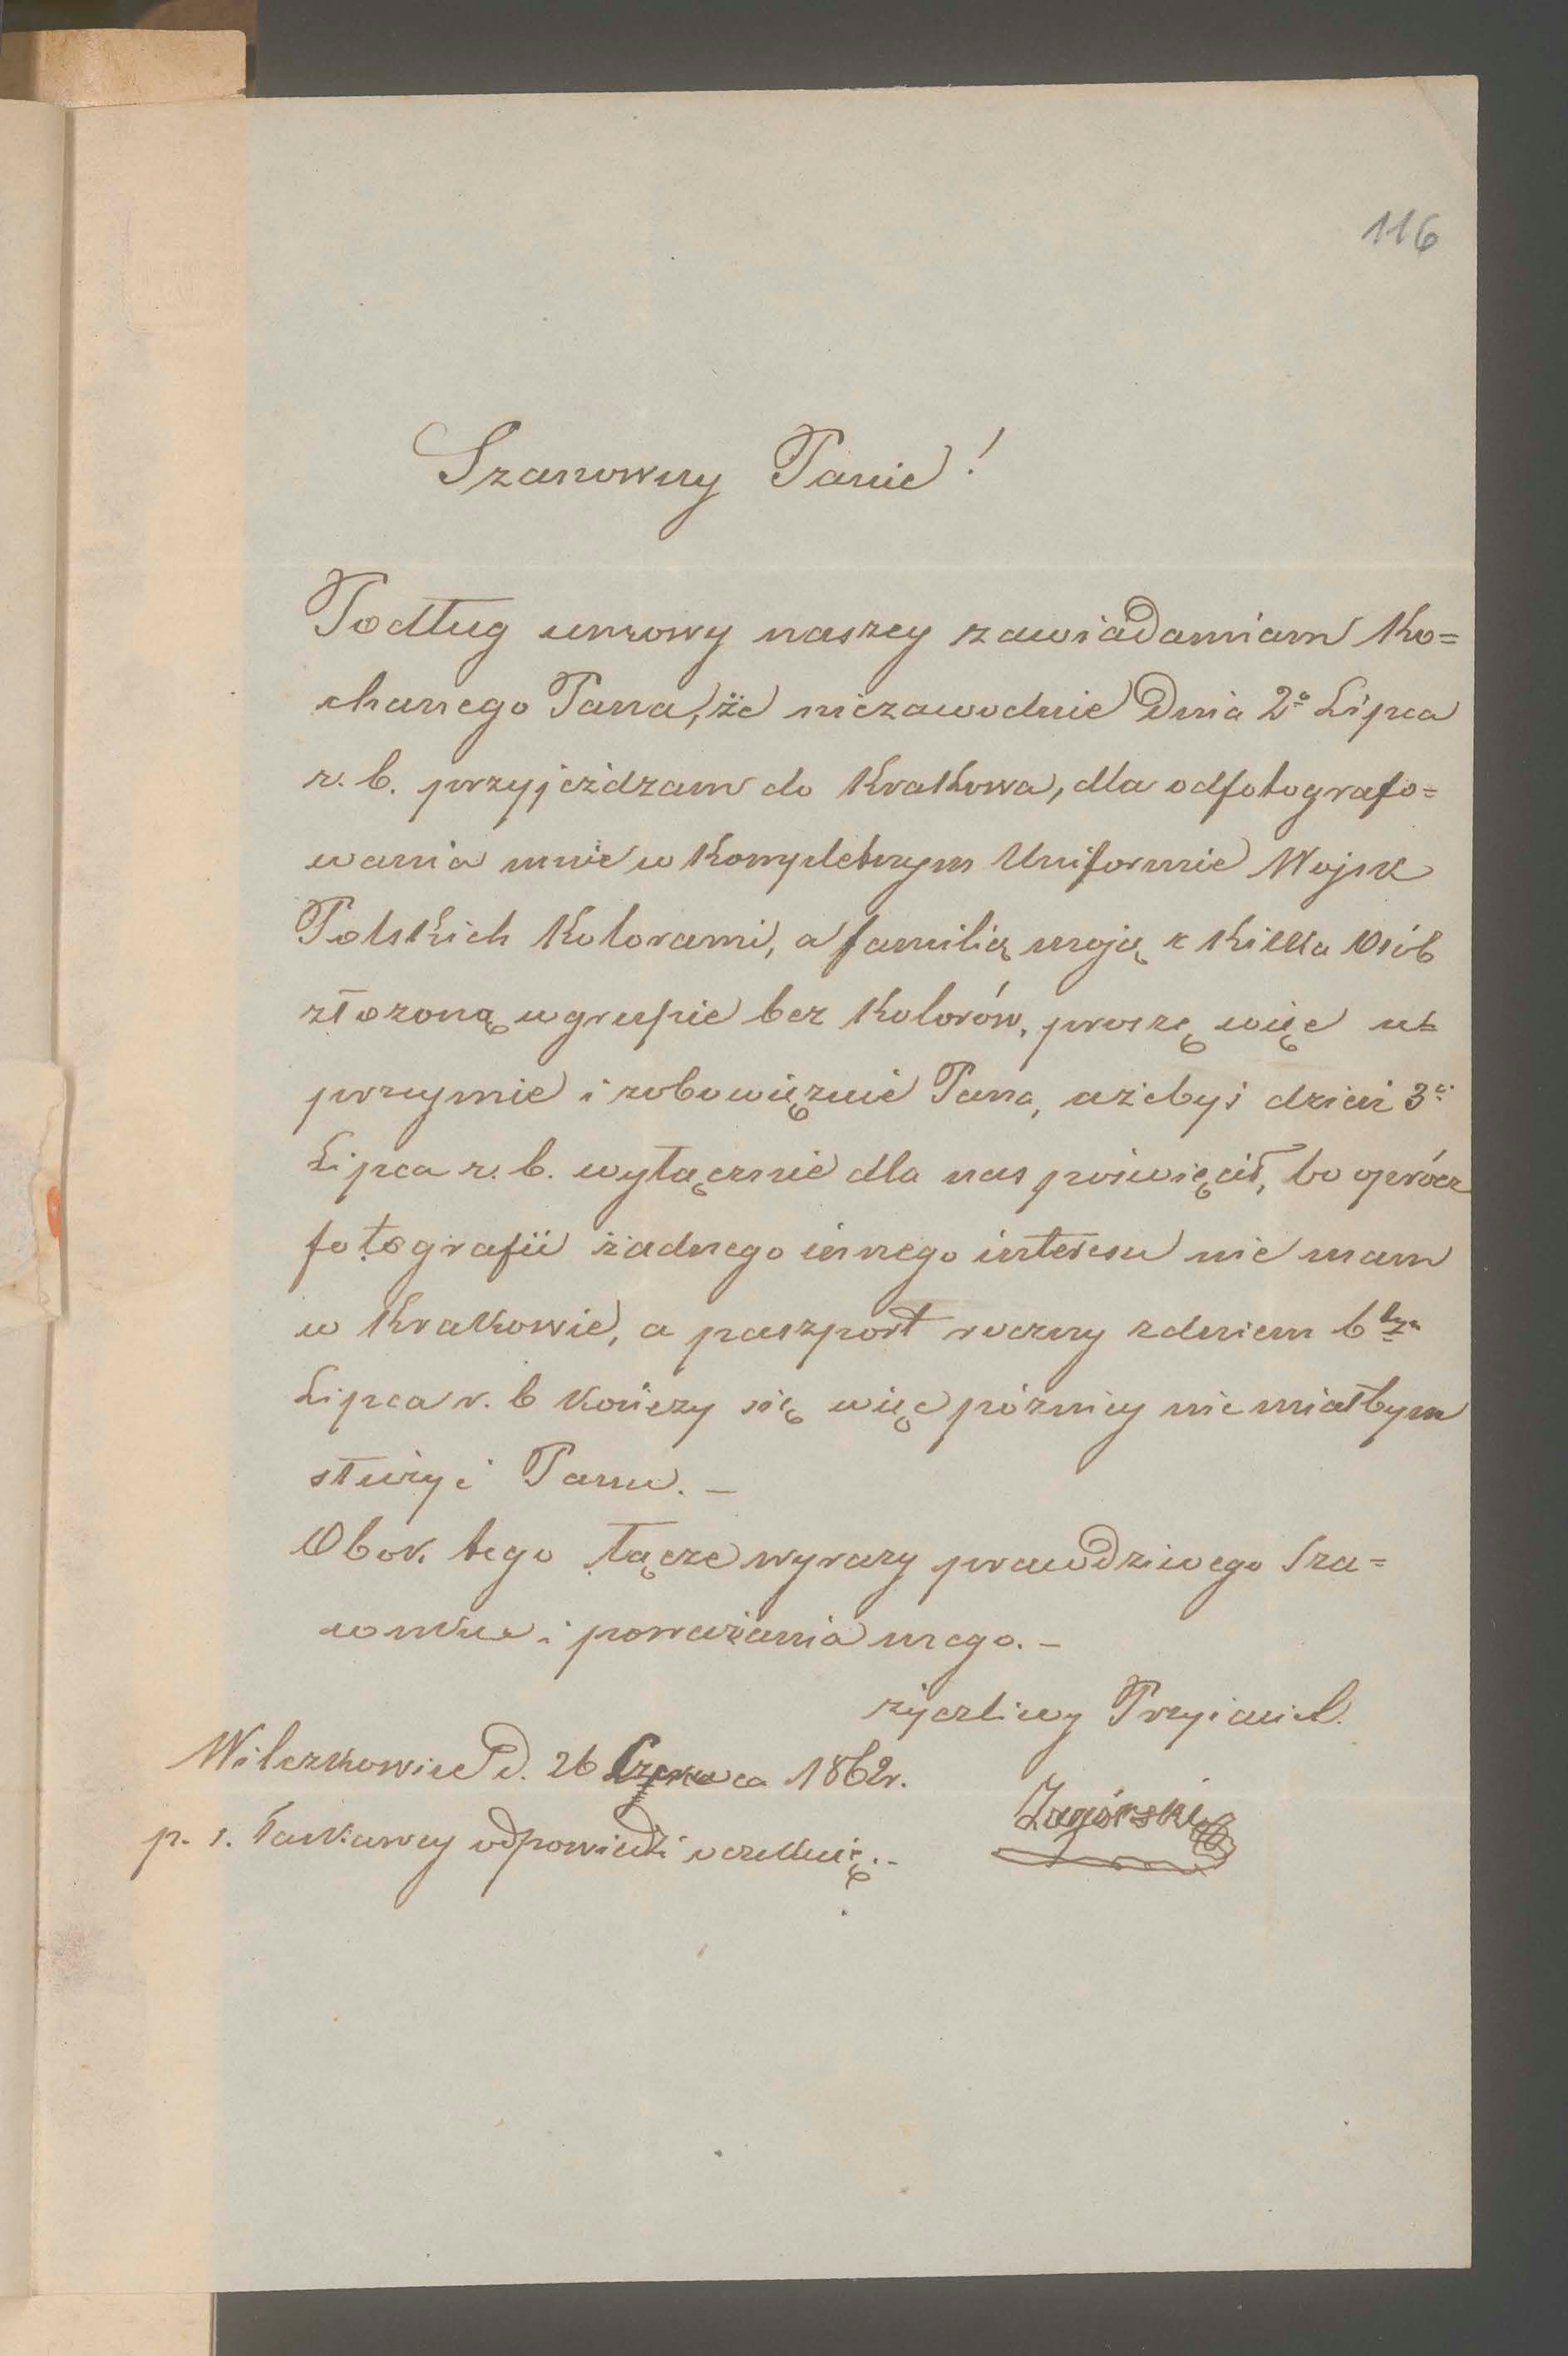 116
Szanowny Panie!
Podług umowy naszey zawiadamiam Ko=
chanego Pana, że niezawodnie Dnia 2o Lipca
r. b. przyjeżdzam do Krakowa, dla odfotografo=
wania mnie w Kompletnym Uniformie Wojsk
Polskich Kolorami, a familią moją z Kilka Osób
złozoną w grupie bez Kolorów, proszę więc u=
przeymie i zobowięznie Pana, ażebyś dzień 3ci
Lipca r. b. wyłącznie dla nas poświęcił, bo oprócz
fotografii żadnego innego interesu nie mam
w Krakowie, a paszport roczny z dniem 6tym
Lipca r. b kończy się więc pózniey nie miałbym
służyć Panu. –
Obok tego łącze wyrazy prawdziwego Sza=
cunku i poważania mego. –
życzliwy Przyiaciel.
Wilczkowice d. 26 Czerwca 1862r.
Zagórski
p. s. Łaskawey odpowiedzi oczekuię. –